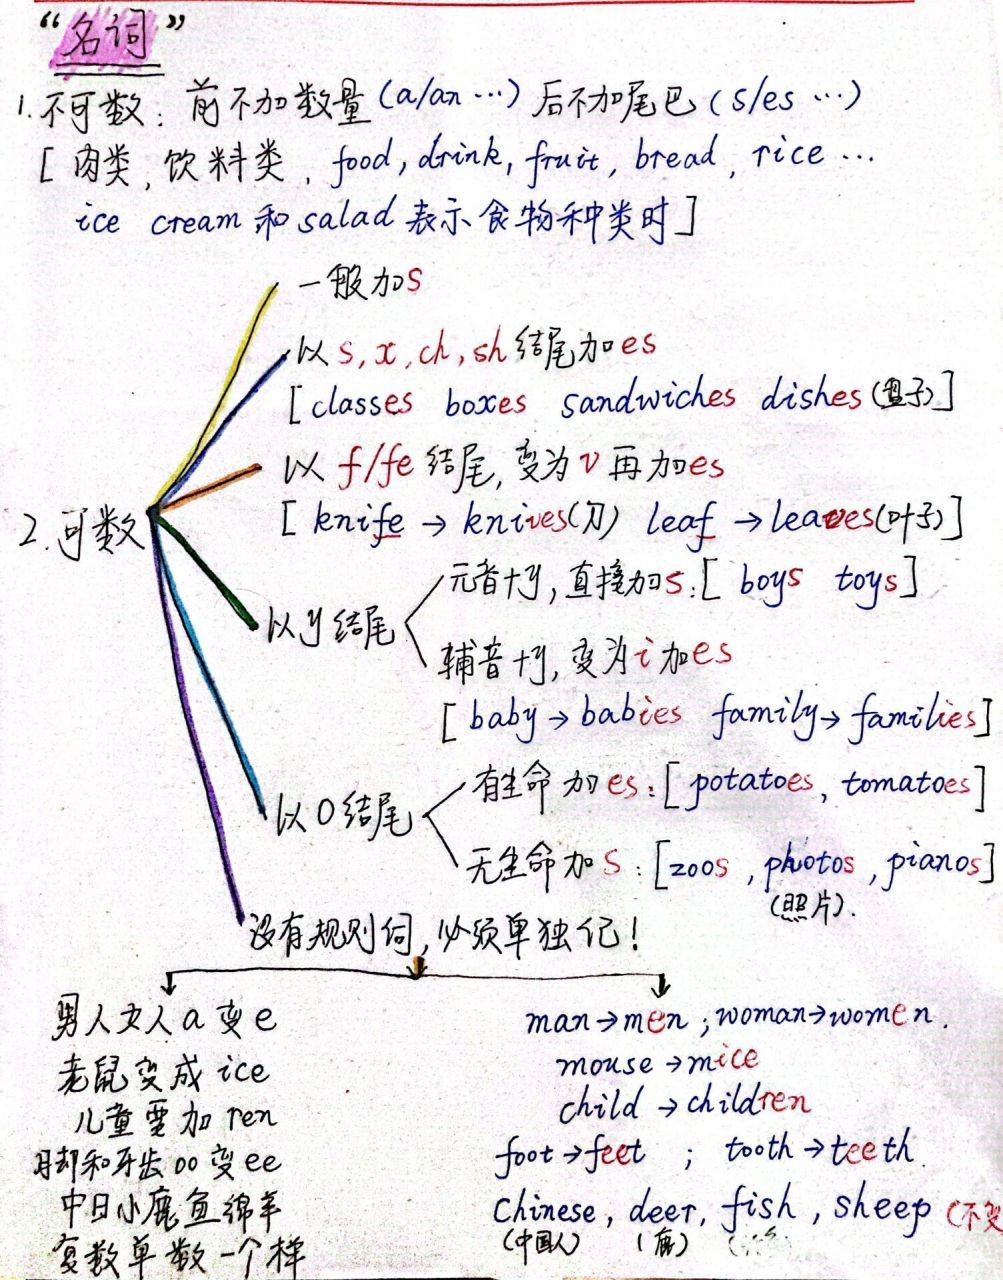 “名词”
1. 不可数：前不加数量（a/an …）后不加尾巴（s/es …）
[ 肉类，饮料类，food, drink, fruit, bread, rice …
ice cream 和 salad 表示食物种类时 ]
一般加s
以 s, x, ch, sh 结尾加es
[ classes boxes sandwiches dishes (盘子) ]
以 f/fe 结尾，变为 v 再加es
[ knife → knives(刀) leaf → leaves(叶子) ]
2. 可数
以y结尾
元音+y，直接加s：[ boys toys ]
辅音+y，变为 i 加es
[ baby → babies family → families ]
以O结尾
有生命加es：[ potatoes, tomatoes ]
无生命加s：[ zoos, photos, pianos ]
(照片).
没有规则词，必须单独记！
男人女人a变e
man→men ; woman→women.
老鼠变成 ice
mouse →mice
儿童要加 ren
child → children
脚和牙齿oo变ee
foot→feet ; tooth→teeth
中日小鹿鱼绵羊
Chinese, deer, fish, sheep (不变
(中国人) (鹿)
复数单数一个样